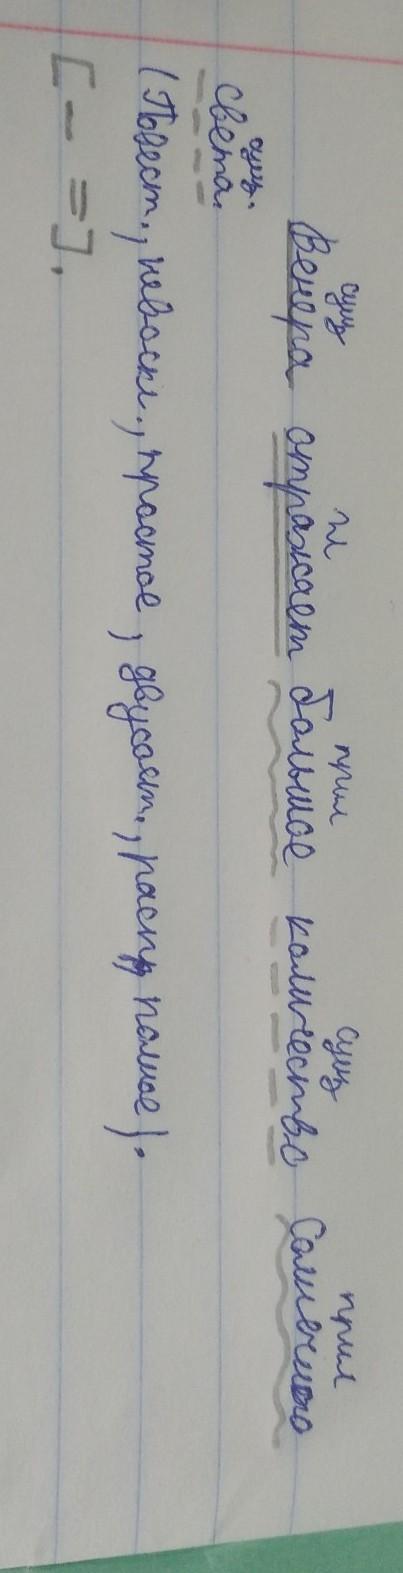 сущ гл прил сущ прил
Венера отражает большое количество Солнечного
сущ.
света.
(Повест., невоскл., простое, двусост., расп, полное).
[– =].